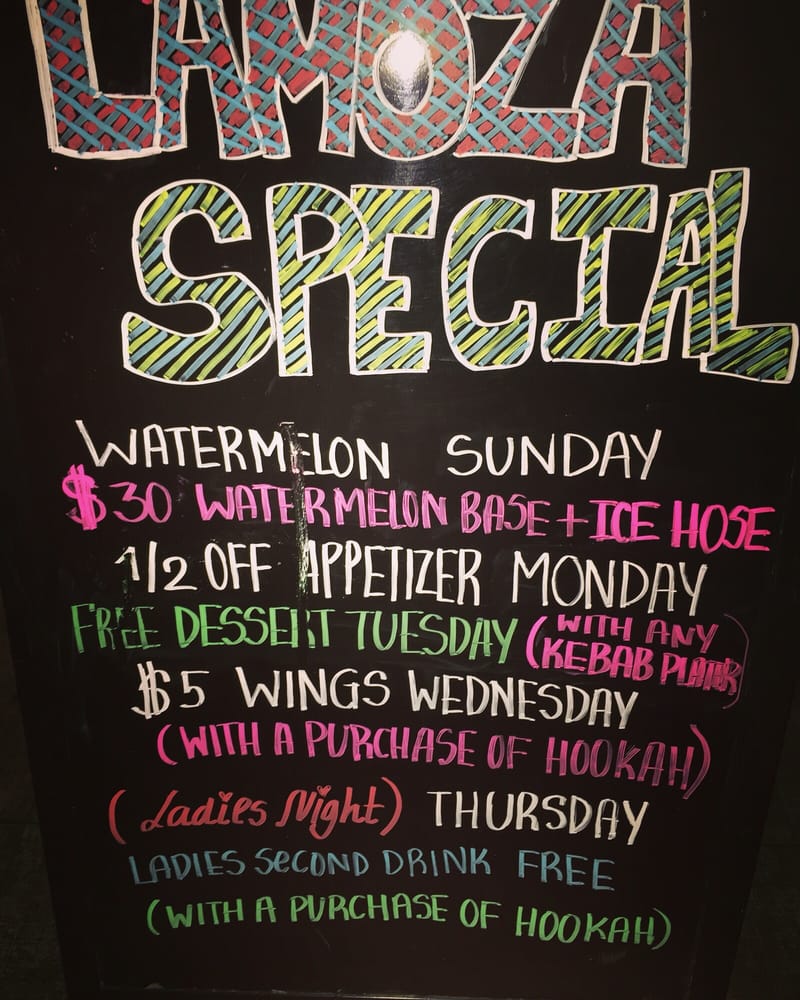 LAMOZA
SPECIAL
WATERMELON SUNDAY
$30 WATERMELON BASE + ICE HOSE
1/2 OFF APPETIZER MONDAY
FREE DESSERT TUESDAY (WITH ANY
KEBAB PLATTER)
$5 WINGS WEDNESDAY
(WITH A PURCHASE OF HOOKAH)
(Ladies Night) THURSDAY
LADIES SECOND DRINK FREE
(WITH A PURCHASE OF HOOKAH)